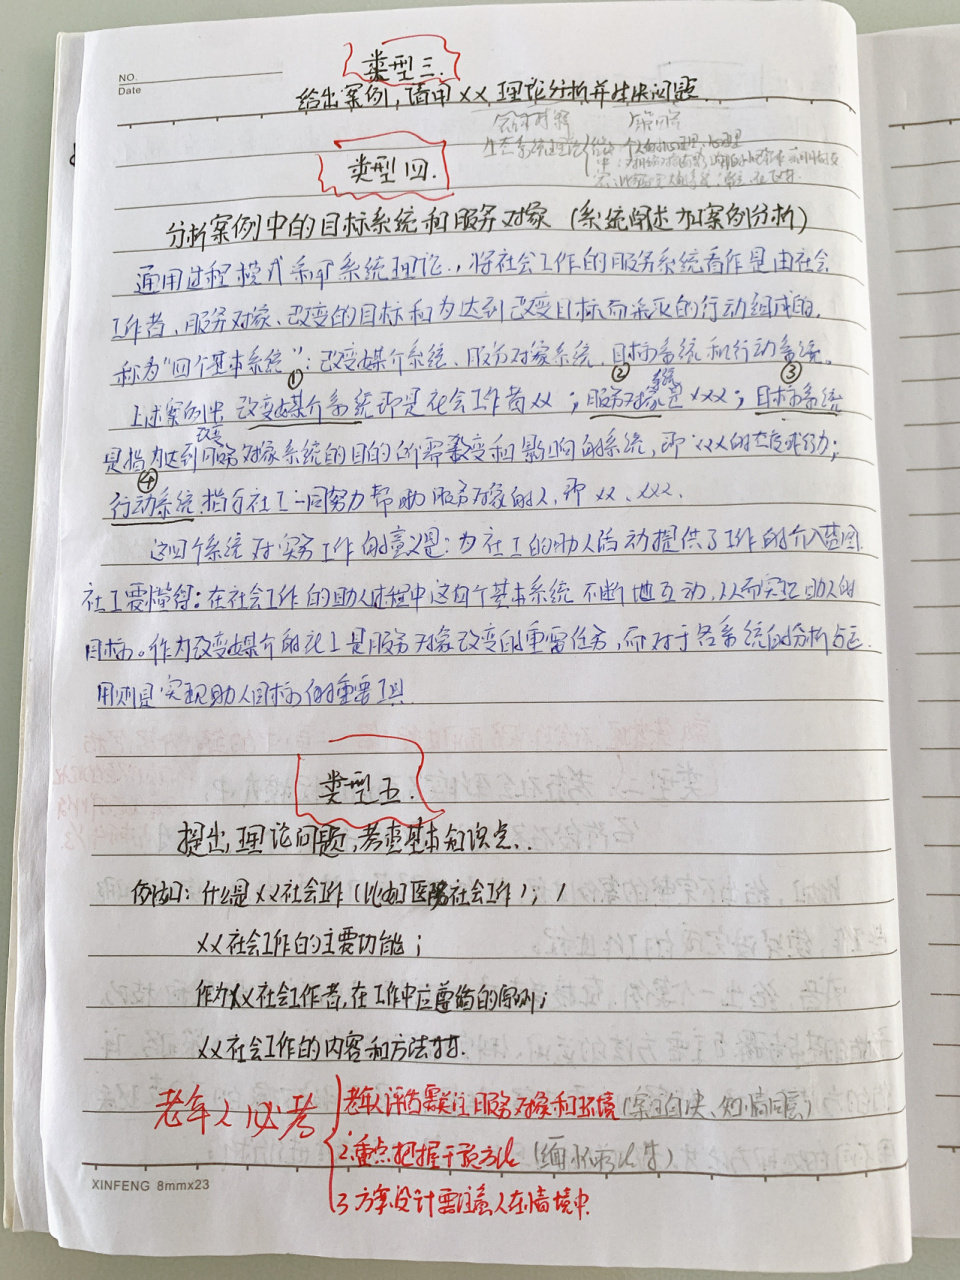 NO.
Date
类型三.
给出案例，请用XX理论分析并解决问题.
类型四.
分析案例中的目标系统和服务对象（系统阐述加案例分析）
通用过程模式和系统理论.，将社会工作的服务系统看作是由社会
工作者、服务对象、改变的目标和为达到改变目标而采取的行动组成的，
称为“四个基本系统”：改变媒介系统、服务对象系统、目标系统和行动系统。
上述案例中 ①改变媒介系统即是社会工作者XX；②服务对象系统是XXX；③目标系统
是指为达到改变服务对象系统的目的所需改变和影响的系统，即XXX的态度或行为；
④行动系统.指与社工一同努力帮助服务对象的人，即XX、XXX.
这四个系统对实务工作的意义是：为社工的助人活动提供了工作的介入蓝图.
社工要懂得：在社会工作的助人过程中这四个基本系统不断地互动，从而实现助人的
目标。作为改变媒介的社工是服务对象改变的重要任务，而对于各系统的分析与运
用则是实现助人目标的重要工具.
类型五.
提出理论问题，考查基本知识点.
例如：什么是XX社会工作（比如医院社会工作）；
XX社会工作的主要功能；
作为XX社会工作者，在工作中应遵循的原则；
XX社会工作的内容和方法
老年人必考
1.老年人评估需关注服务对象和环境（案主自决、知情同意）
2.重点把握干预方法（缅怀
3.方案设计需注意人在情境中.
XINFENG 8mmx23